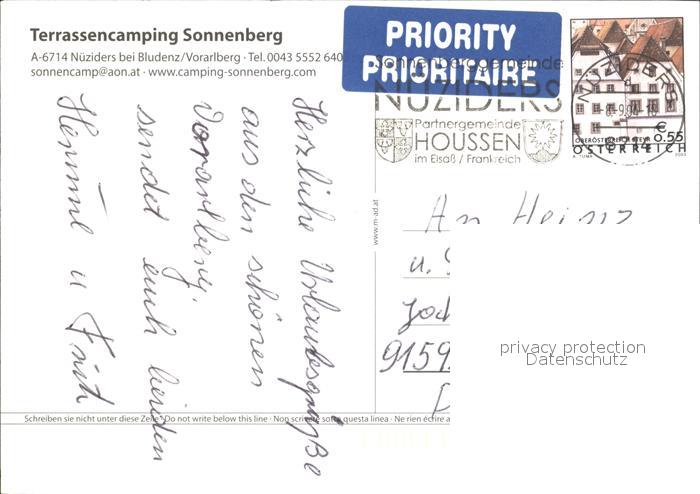 Terrassencamping Sonnenberg
A-6714 Nüziders bei Bludenz/Vorarlberg · Tel. 0043 5552 640
sonnencamp@aon.at · www.camping-sonnenberg.com
PRIORITY
PRIORITAIRE
Sonnenberggemeinde
NÜZIDERS
Partnergemeinde
HOUSSEN
im Elsaß / Frankreich
NÜZIDERS
-8.-9.04-18
6714
€ 0.55
ÖSTERREICH
A. TUMA
2003
Herzliche Urlaubsgrüße
aus den schönen
Vorarlberg.
sendet euch beiden
u
www.m-ad.at
An Heinz
u.
9159
privacy protection
Datenschutz
Schreiben sie nicht unter diese Zeile · Do not write below this line · Non scrivere sotto questa linea · Ne rien écrire a